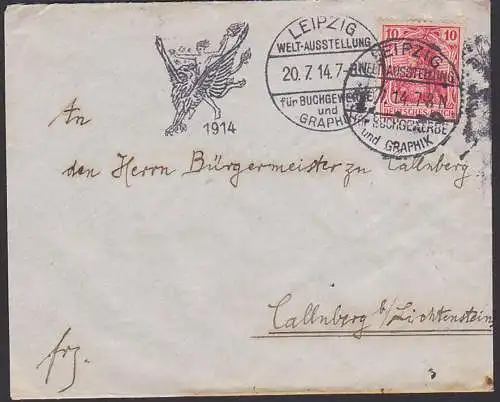 LEIPZIG
WELT-AUSSTELLUNG
20.7.14.7-8N
für BUCHGEWERBE
und
GRAPHIK
1914
10 10
LEIPZIG
WELT-AUSSTELLUNG
7.14.7-8N
BUCHGEWERBE
und GRAPHIK
An
den Herrn Bürgermeister zu Callnberg.
Callnberg b/Lichtenstein
frz.